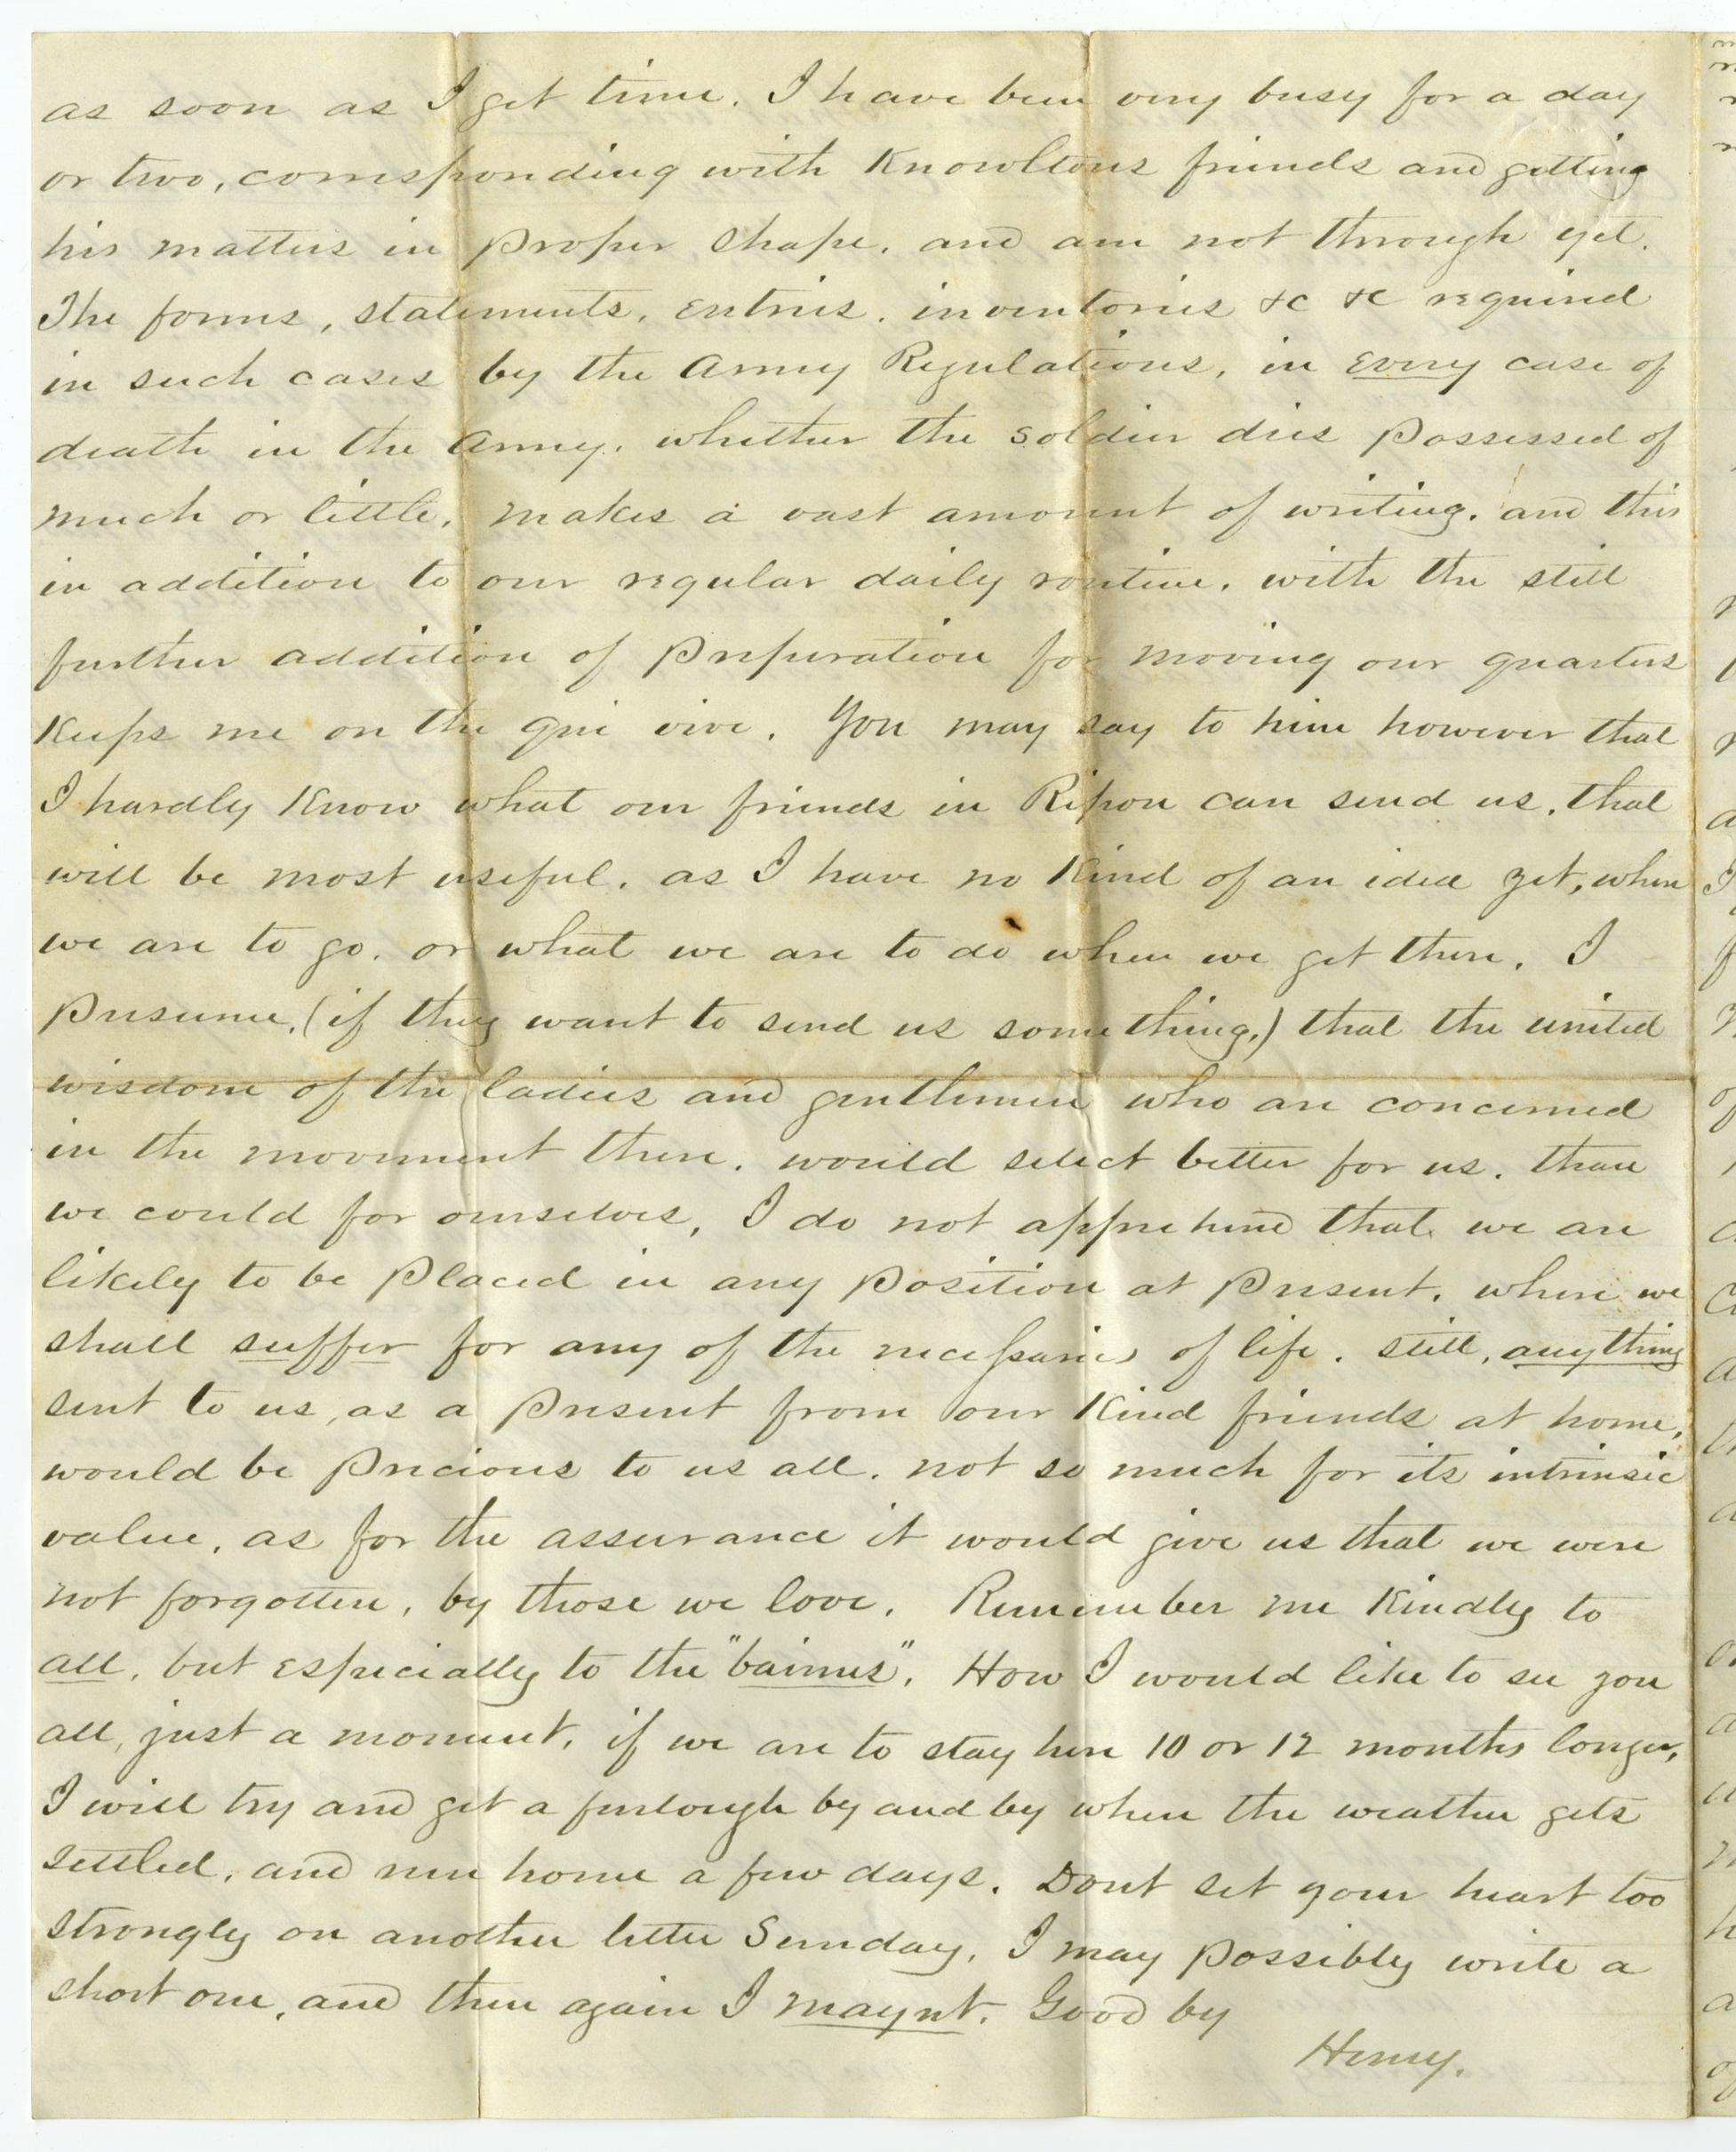 as soon as I get time. I have been very busy for a day
or two, corresponding with Knowltons friends and getting
his matters in proper shape, and am not through yet.
The forms, statements, entries, inventories &c &c required
in such cases by the Army Regulations, in every case of
death in the Army, whether the soldier dies possessed of
much or little, makes a vast amount of writing, and this
in addition to our regular daily routine, with the still
further addition of preperation for moving our quarters
keeps me on the qui vive. You may say to him however that
I hardly know what our friends in Ripon can send us, that
will be most useful, as I have no kind of an idea yet, where
we are to go, or what we are to do when we get there. I
presume, (if they want to send us something,) that the united
wisdom of the ladies and gentlemen who are concerned
in the movement there, would select better for us, than
we could for ourselves, I do not apprehend that we are
likely to be placed in any position at present, where we
shall suffer for any of the necessaries of life. still, anything
sent to us, as a present from our kind friends at home,
would be precious to us all, not so much for its intrinsic
value, as for the assurance it would give us that we were
not forgotten, by those we love. Remember me kindly to
all, but especially to the "bairnes". How I would like to see you
all, just a moment, if we are to stay here 10 or 12 months longer,
I will try and get a furlough by and by when the weather gets
settled, and run home a few days. Dont set your heart too
strongly on another letter Sunday, I may possibly write a
short one, and then again I maynt. Good by
Henry.